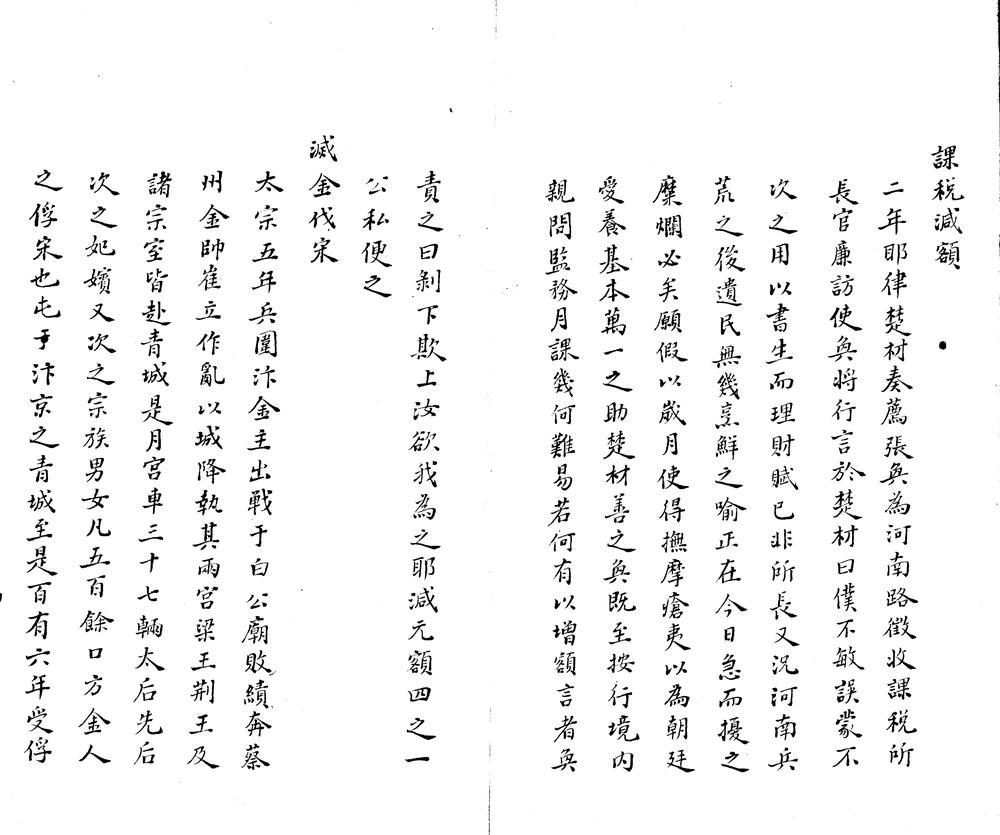 課税減額
二年耶律楚材奏薦張奐為河南路徴收課税所
長官廉訪使奐将行言於楚材曰僕不敏誤蒙不
次之用以書生而理財賦已非所長又況河南兵
荒之後遺民無幾烹鮮之喻正在今日急而擾之
糜爛必矣願假以歲月使得撫摩瘡夷以為朝廷
受養基本萬一之助楚材善之奐既至按行境内
親問監務月課幾何難易若何有以增額言者奐
責之曰剝下欺上汝欲我為之耶減元額四之一
公私便之
滅金伐宋
太宗五年兵圍汴金主出戰于白公廟敗績奔蔡
州金帥崔立作亂以城降執其兩宮梁王荆王及
諸宗室皆赴青城是月宮車三十七輛太后先后
次之妃嬪又次之宗族男女凡五百餘口方金人
之俘宋也屯于汴京之青城至是百有六年受俘